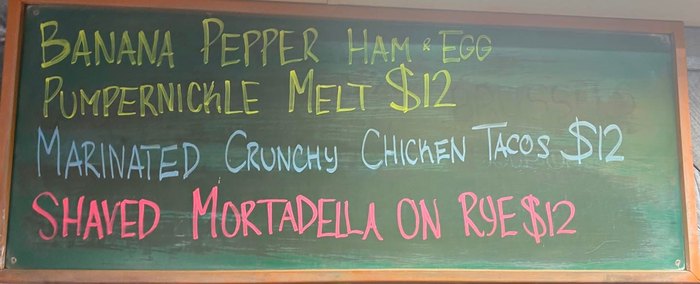 BANANA PEPPER HAM & EGG
PUMPERNICKLE MELT $12
MARINATED CRUNCHY CHICKEN TACOS $12
SHAVED MORTADELLA ON RYE $12